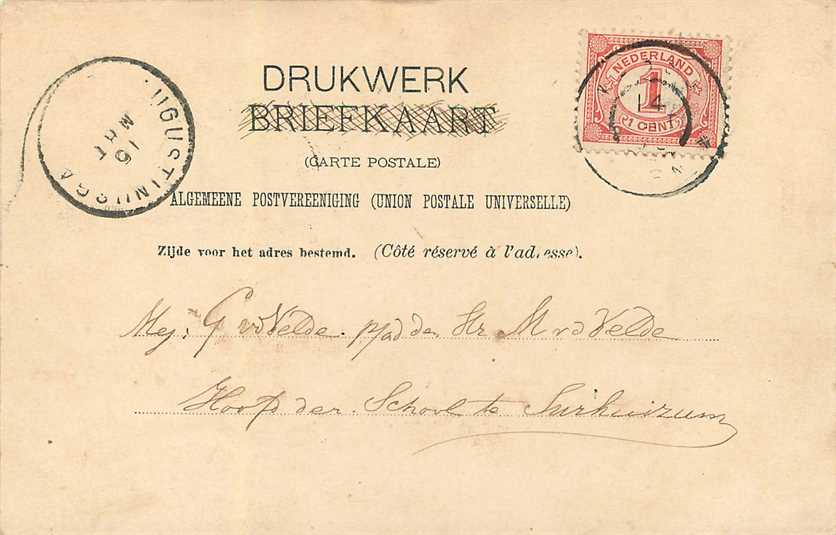 DRUKWERK
BRIEFKAART
(CARTE POSTALE)
ALGEMEENE POSTVEREENIGING (UNION POSTALE UNIVERSELLE)
Zijde voor het adres bestemd. (Côté réservé à l'adresse).
NEDERLAND
1
1 CENT
14
UGUSTINUSGA
16
MRT
Mej: G vd Velde. p/ad den Hr M v d Velde
Hoofd der School te Surhuizum